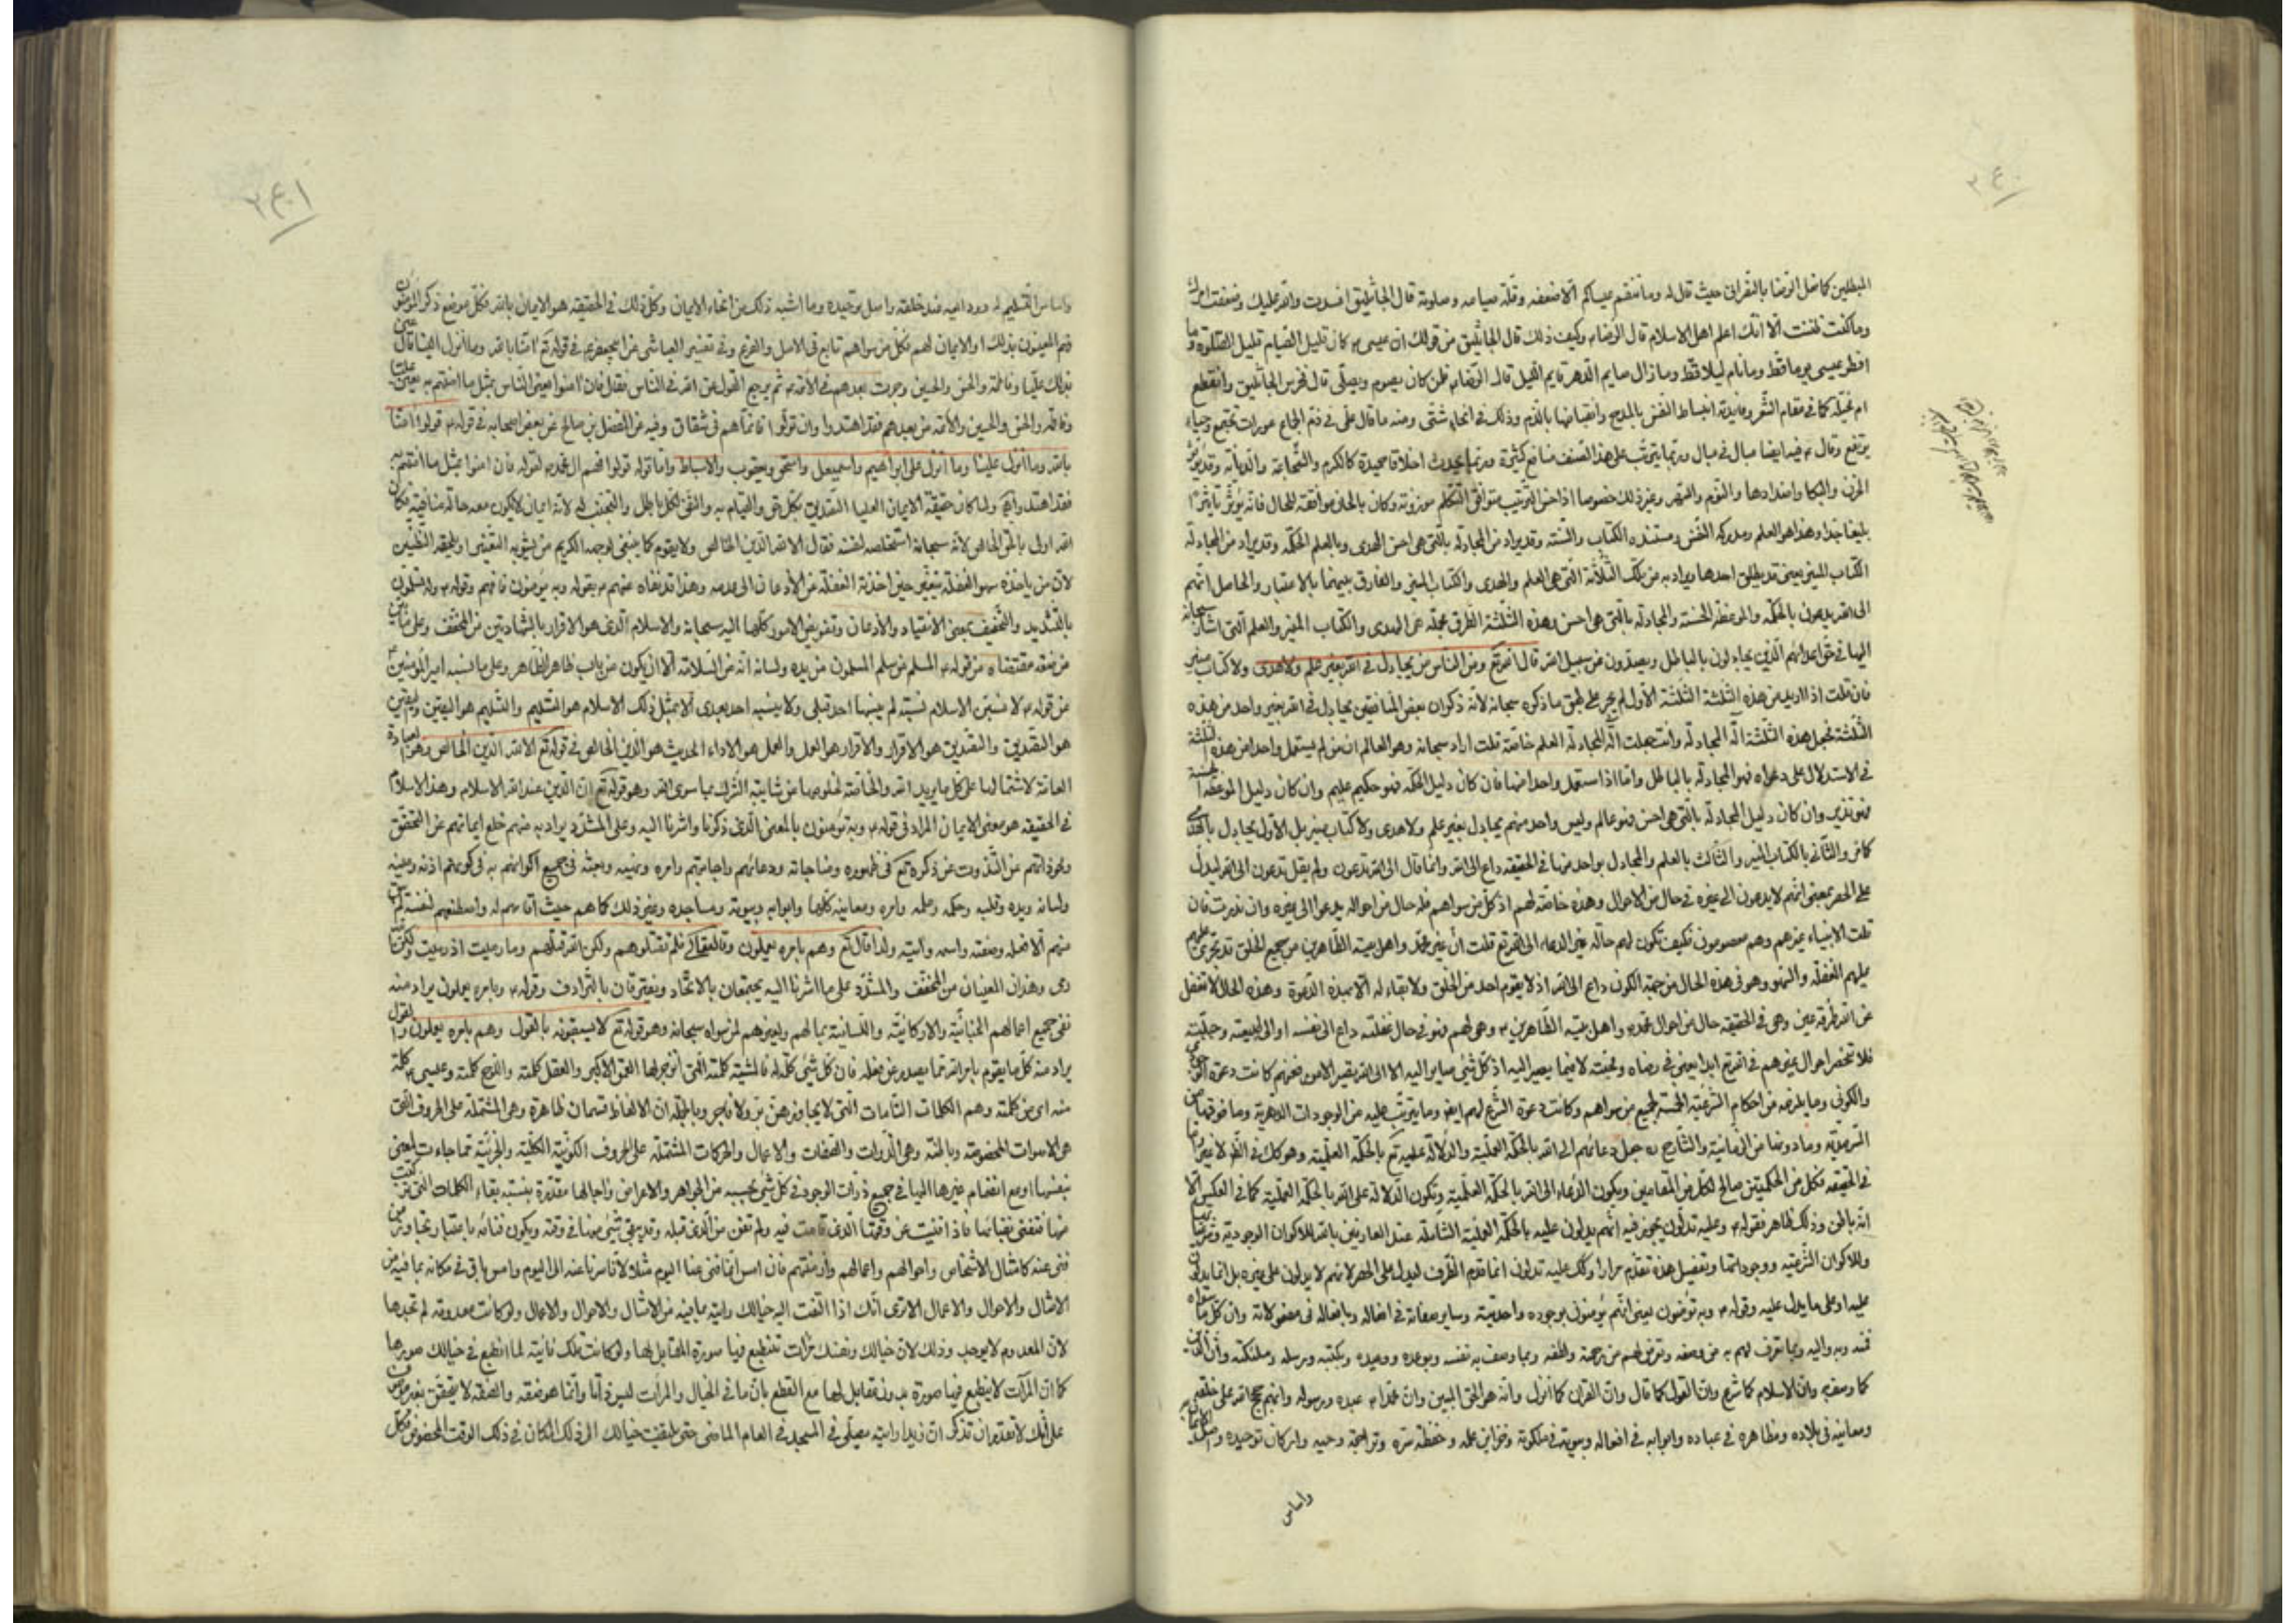 ٢٤٠
المبطلين كما فعل الرضا بالنصرانى حيث قال له وما ننقم عيساكم الا ضعفه وقلة صيامه وصلوته قال الجاثليق افسدت والله علمك وضعفت امرك
وما كنت ظننت الا انك اعلم اهل الاسلام قال الرضا وكيف ذلك قال الجاثليق من قولك ان عيسى كان قليل الصيام قليل الصلوة وما
افطر عيسى يوما قط وما نام ليلا قط وما زال صايم الدهر قايم الليل قال الرضا فلمن كان يصوم ويصلى قال فخرس الجاثليق وانقطع
ام تخيله كما فى مقام الشعر وفايدته انبساط النفس بالمدح وانقباضها بالذم وذلك فى انحاء شتى ومنه ما قال على فى ذم الجماع عورات تجتمع وحياء
يرتفع وقال فيه ايضا مبال فى مبال وربما يترتب على هذا الصنف منافع كثيرة وربما يحدث اخلاقا حميدة كالكرم والشجاعة والديانة وقد يورث
الحزن والبكا وامتدادها والنوم والسهر وغير ذلك خصوصا اذا حسن الترتيب بتوافق التكلم موزونة وكان بالحان موافقة للحال فانه يؤثر تاثيرا
بليغا جدا وهذا هو العلم ومدركه النفس ومستنده الكتاب والسنة وقد يراد من المجادلة بالتى هى احسن الهدى وبالعلم الحكمة وقد يراد من المجادلة
الكتاب المنير يعنى قد يطلق احدها ويراد به من تلك الثلاثة التى هى العلم والهدى والكتاب المنير والفارق بينهما بالاعتبار والحاصل انهم
الى الله يدعون بالحكمة والموعظة الحسنة والمجادلة بالتى هى احسن وهذه الثلثة الطرق مجملة عن الهدى والكتاب المنير والعلم التى اشار سبحانه
اليها فى حق اعدائهم الذين يجادلون بالباطل ويصدون عن سبيل الله قال الله تع ومن الناس من يجادل فى الله بغير علم ولا هدى ولا كتاب منير
فان قلت اذا اريد من هذه الثلثة الثلثة الاول لم يجر على طبق ما ذكره سبحانه لانه ذكر ان بعض المنافقين يجادل فى الله بغير واحد من هذه
الثلثة فجعل هذه الثلثة الة المجادلة وانت جعلت الة المجادلة العلم خاصة قلت اراد سبحانه وهو العالم ان من لم يستعمل واحدا من هذه الثلثة
فى الاستدلال على دعواه فهو المجادلة بالباطل واما اذا استعمل واحدا منها فان كان دليل الحكمة فهو حكيم عليم وان كان دليل الموعظة الحسنة
فهو نذير وان كان دليل المجادلة بالتى هى احسن فهو عالم وليس واحد منهم يجادل بغير علم ولا هدى ولا كتاب منير بل الاول يجادل بالهدى
كما مر والثانى بالكتاب المنير والثالث بالعلم والمجادل بواحد منها فى الحقيقة داع الى الله وانما قال الى الله تدعون ولم يقل تدعون الى الله ليدل
على الحصر بمعنى انهم لا يدعون الى غيره فى حال من الاحوال وهذه خاصة لهم اذ كل من سواهم فله حال من احواله يدعو الى غيره وان ندرت فان
قلت الانبياء غيرهم وهم معصومون فكيف تكون لهم حالة غير الدعاء الى الله تع قلت ان غير محمد واهل بيته الطاهرين من جميع الخلق قد تجرى عليهم
عليهم الغفلة والسهو وهو فى هذه الحال من جهة الكون داع الى الله اذ لا يقوم احد من الخلق ولا بقاء له الا بهذه الدعوة وهذه الحال لا تغفل
عن الله طرفة عين وهى فى الحقيقة حال من احوال محمد واهل بيته الطاهرين وهى لهم فهو فى حال غفلته داع الى نفسه او الى طبيعته وجبلته
فلا تنحصر احوال غيرهم فى الله تع ابدا يعنى فى رضاه ومحبته لا فيما يصير اليه اذ كل شئ صاير اليه الا الى الله تصير الامور
والكونى وما يلزمه من احكام الشرعية الخمسة لجميع من سواهم وكانت دعوة الشرع لهم ايض وما يترتب عليه من الوجودات الدهرية وما فوقها من
السرمدية وما دونها من الزمانية والشارح ره جعل دعائهم الى الله بالحكمة العملية والدلالة عليه تع بالحكمة العلمية وهو كك فى الظ
فى الحقيقة فكل من الحكمتين صالح لكل من المقامين ويكون الدعاء الى الله بالحكمة العلمية وتكون الدلالة على الله بالحكمة العملية كما فى العكس الا
انه باطن وذلك ظاهر فقوله وعليه تدلون يجوز فيه انهم يدلون عليه بالحكمة العملية الشاملة عند العارفين بالله للاكوان الوجودية وشرعياتها
وللاكوان الشرعية ووجوداتها وتفصيل هذه تقدم مرارا وكك عليه تدلون انما قدم الظرف ليدل على الحصر لانهم لا يدلون على غيره بل انما يدلون
عليه او على ما يدل عليه وقوله وبه تؤمنون يعنى انهم يؤمنون بوجوده واحديته وساير صفاته فى افعاله وبافعاله فى مفعولاته وان كل ما سواه
فمنه وبه واليه وبما تعرف لهم به من وصفه وتعرض لهم من رحمته واللطفه وبما وصف به نفسه وبوعده ووعيده وبكتبه ورسله وملئكته وان الدين
كما وصف وان الاسلام كما شرع وان القول كما قال وان القران كما انزل وانه هو الحق المبين وان محمدا عبده ورسوله وانهم حجج الله على خلقه
ومعانيه فى بلاده ومظاهره فى عباده وابوابه فى افعاله وبيوته فى ملكوته وخزاين علمه وحفظة سره وتراجمة وحيه واركان توحيده
واساس
٢٤١
واساس التسليم له ورد اليه عند خلقه واصل توحيده وما اشبه ذلك من انحاء الايمان وكل ذلك فى الحقيقة هو الايمان بالله فكل موضع ذكر المؤمنون
فهم المعنيون بذلك او الايمان لهم فكل من سواهم تابع فى الاصل والفرع وفى تفسير العياشى عن ابى جعفر فى قوله تع امنا بالله وما انزل الينا قال عنى
بذلك عليا وفاطمة والحسن والحسين وجرت بعدهم فى الائمة ثم يرجع القول من الله فى الناس فقال فان امنوا يعنى الناس بمثل ما امنتم به يعنى عليا
وفاطمة والحسن والحسين والائمة من بعدهم فقد اهتدوا وان تولوا فانما هم فى شقاق وفيه عن المفضل بن صالح عن بعض اصحابه فى قوله قولوا امنا
بالله وما انزل علينا وما انزل على ابراهيم واسمعيل واسحق ويعقوب والاسباط واما قوله قولوا فهم ال محمد لقوله فان امنوا بمثل ما امنتم به
فقد اهتدوا ولما كان حقيقة الايمان العليا التصديق بكل حق والقيام به والنفى لكل باطل والتجنب له لانه ايمان لا يكون معه حالة منافية فكان
الله اولى بالحق الخالص لانه سبحانه استخلصه لنفسه فقال الا لله الدين الخالص ولا يقوم كما ينبغى لوجهه الكريم من يشوبه التغيير او يلحقه التلبيس
لان من ياخذه سهو الغفلة يتغير حين اخذته الغفلة عن الاذعان الى عدمه وهذا قد نفاه عنهم بقوله وبه يؤمنون فافهم وقوله وله تسلمون
بالتشديد والتخفيف بمعنى الانقياد والاذعان وتفويض الامور كلها اليه سبحانه والاسلام الذى هو الاقرار بالشهادتين من المخفف
مقتضاه من قوله المسلم من سلم المسلمون من يده ولسانه انه من السلامة الا ان يكون من باب ظاهر الظاهر وعلى ما نسبه امير المؤمنين
من قوله لانسبن الاسلام نسبة لم ينسبها احد قبلى ولا ينسبه احد بعدى الا بمثل ذلك الاسلام هو التسليم والتسليم هو اليقين واليقين
هو التصديق والتصديق هو الاقرار والاقرار هو العمل والعمل هو الاداء الحديث هو الدين الخالص فى قوله تع الا لله الدين الخالص وهو العبادة
العامة لاشتمالها على كل ما يريد الله والخاصة لخلوصها من شايبة الشرك بما سوى الله وهو قوله تع ان الدين عند الله الاسلام وهذا الاسلام
فى الحقيقة هو معنى الايمان المراد فى قوله وبه تؤمنون بالمعنى الذى ذكرنا واشرنا اليه وعلى المشدد يراد به منهم خلع انياتهم عن التحقق
عن التذوت عن ذكره تع فى ظهوره ومناجاته ودعائهم واجابتهم وامره ونهيه وبعثه فى جميع اكوانهم به فى كونهم اذنه وعينه
ولسانه ويده وقلبه وحكمه وعلمه وامره ومعانيه كلها وابوابه وبيوته ومساجده وغير ذلك كما هم حيث اقامهم له واصطنعهم لنفسه
منهم الا فعله وصفته واسمه وايته ولذا قال تع وهم بامره يعملون وقال فلم تقتلوهم ولكن الله قتلهم وما رميت اذ رميت ولكن الله
رمى وهذان المعنيان من المخفف والمشدد على ما اشرنا اليه يجتمعان بالاتحاد ويفترقان بالترادف وقوله وبامره يعملون يراد منه
نفى جميع اعمالهم الجنانية والاركانية واللسانية بما لهم ولغيرهم لمن سواه سبحانه وهو قوله تع لا يسبقونه بالقول وهم بامره يعملون
يراد منه كل ما يقوم بامر الله مما يصدر عن فعله فان كل شئ كلمة له فالمشية كلمته التى انزجر لها العمق الاكبر والعقل كلمته والروح كلمته وعيسى كلمة
منه اى من كلمته وهم الكلمات التامات التى لا يجاوزهن بر ولا فاجر وبالجملة ان الالفاظ قسمان ظاهرة وهى المشتملة على الحروف التى
هى الاصوات المخصوصة وباطنة وهى الذوات والصفات والاعمال والحركات المشتملة على الحروف الكونية الكلية والجزئية مما جاءت لمعنى
بنفسها او مع انضمام غيرها اليها فى جميع ذرات الوجود فى كل شئ بحسبه من الجواهر والاعراض واجالها مقدرة بنسبة بقاء الكلمات التى تركبت
منها فتفنى بفنائها فاذا فنيت عن وقتها الذى قامت فيه ولم تفن من الذى قبله وقد يبقى شئ منها فى وقته ويكون فنائه باعتبار تجاوز من
فنى عنه كامثال الاشخاص واحوالهم واعمالهم وازمنتهم فان امس انما فنى عنا اليوم مثلا لانا سرنا عنه الى اليوم وامس باق فى مكانه بما فيه من
الامثال والاحوال والاعمال الا ترى انك اذا التفت اليه خيالك رايته بما فيه من الامثال والاحوال والاعمال ولو كانت معدومة لم تجدها
لان المعدوم لا يوجد وذلك لان خيالك ونفسك مرات تنطبع فيها صورة المقابل لها ولو كانت تلك فانية لما انطبع فى خيالك صورها
كما ان المرات لا ينطبع فيها صورة بدون مقابل لها مع القطع بان ما فى الخيال والمرات ليس ذاتا وانما هو صفة والصفة لا تتحقق بغير موصوف
على انك لا تقدر ان تذكر ان زيدا رايته يصلى فى المسجد فى العام الماضى حتى يلتفت خيالك الى ذلك المكان فى ذلك الوقت المخصوص فكل